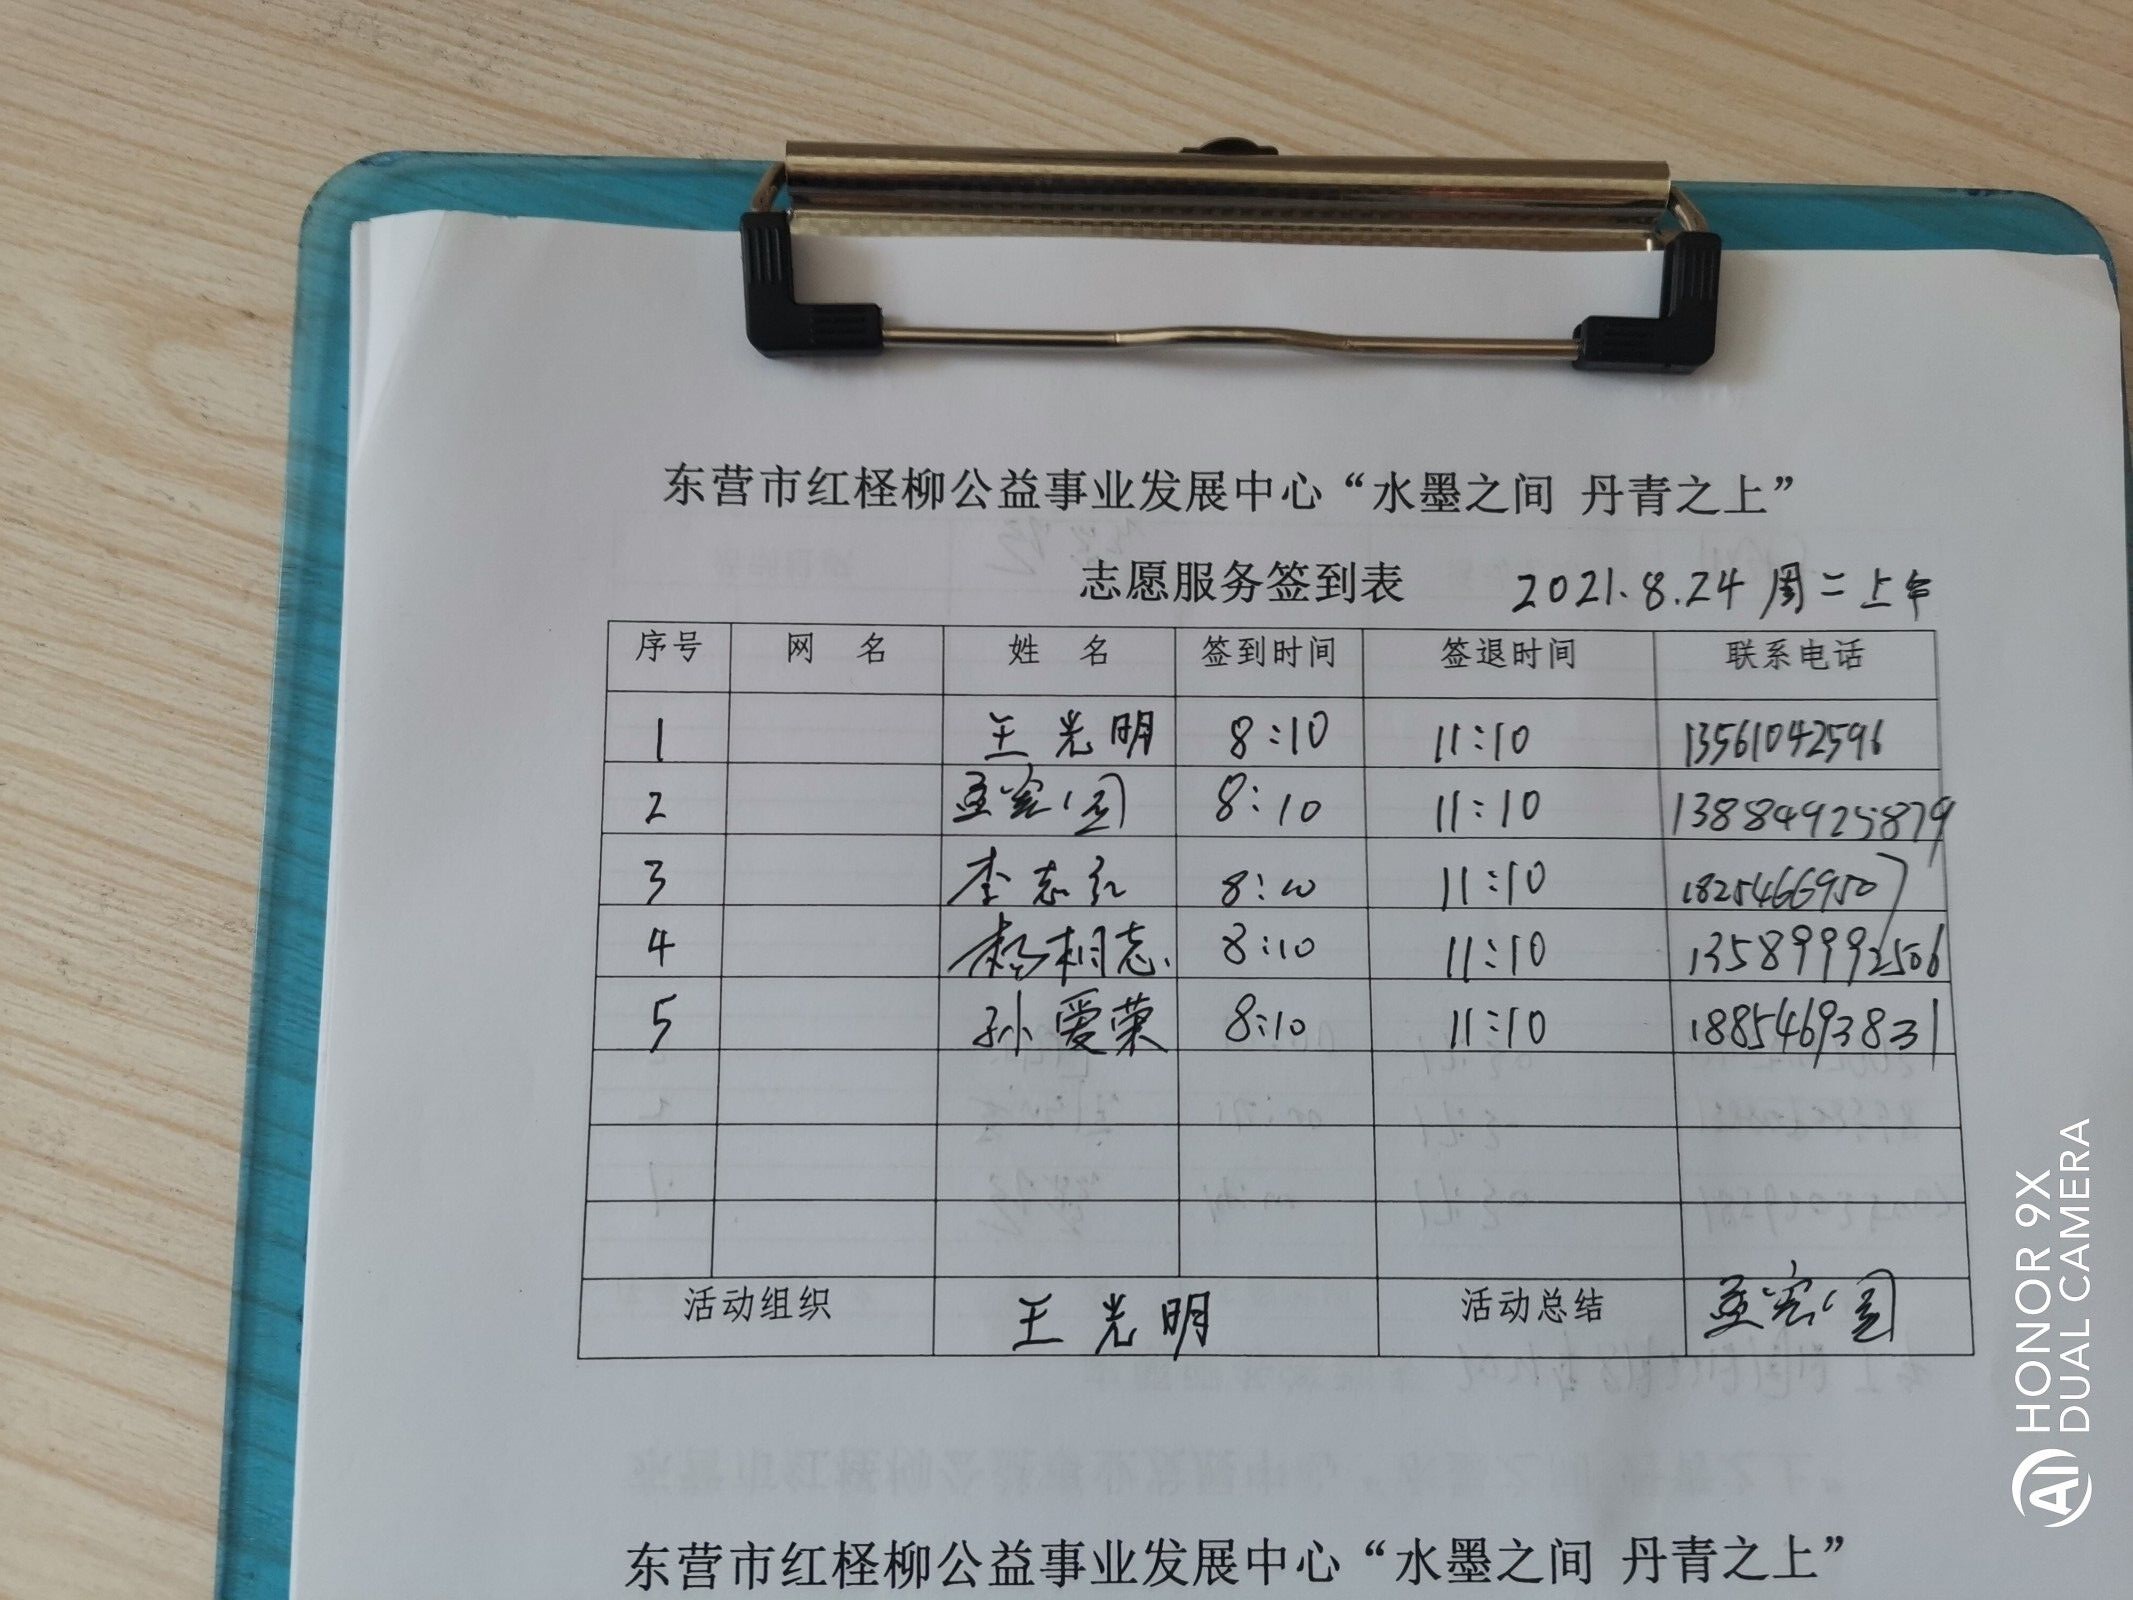 东营市红柽柳公益事业发展中心“水墨之间 丹青之上”
志愿服务签到表 2021.8.24 周二上午
序号 网 名 姓 名 签到时间 签退时间 联系电话
1 王光明 8:10 11:10 13561042596
2 8:10 11:10 13884925879
3 李志红 8:10 11:10 18254669507
4 杨相志 8:10 11:10 13589992506
5 孙爱荣 8:10 11:10 18854693831
活动组织 王光明 活动总结
东营市红柽柳公益事业发展中心“水墨之间 丹青之上”
HONOR 9X
AI DUAL CAMERA